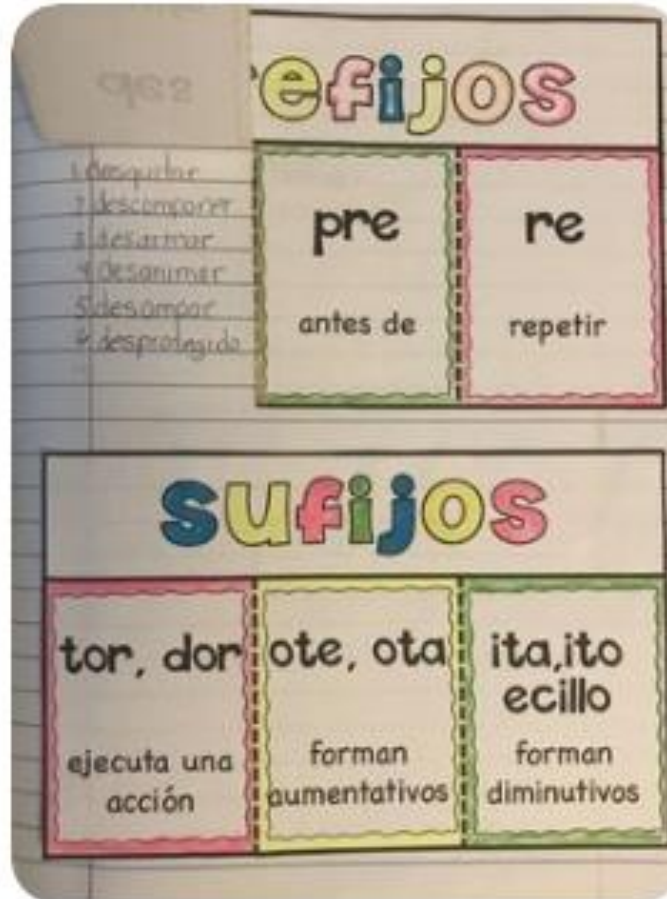 efijos
des
1 desquitar
2 descomponer
3 desarmar
4 desanimar
5 desampar
6 desprotegido
pre
antes de
re
repetir
sufijos
tor, dor
ejecuta una
acción
ote, ota
forman
aumentativos
ita,ito
ecillo
forman
diminutivos